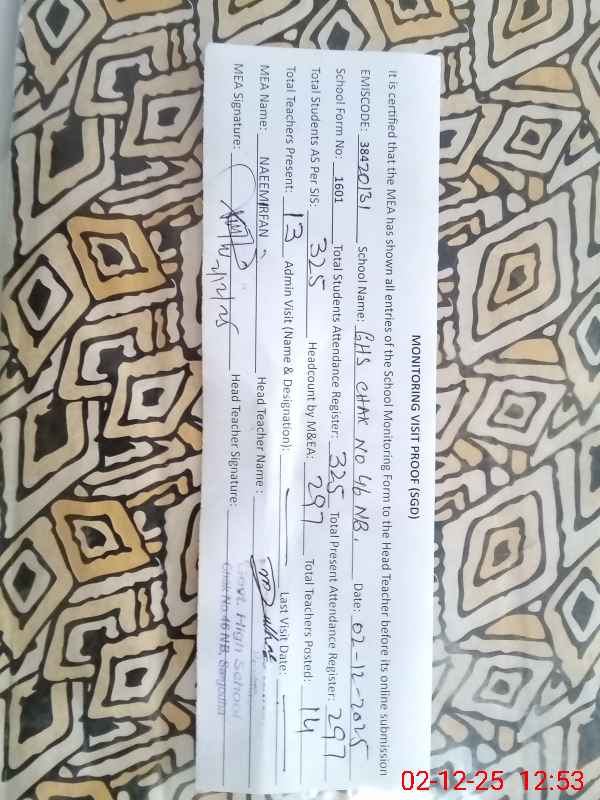 MONITORING VISIT PROOF (SGD)
it is certified that the MEA has shown all entries of the School Monitoring Form to the Head Teacher before its online submission
EMISCODE: 38420131 School Name: GHS CHAK NO 46 NB, Date: 02-12-2025
School Form No: 1601 Total Students Attendance Register: 325 Total Present Attendance Register: 297
Total Students AS Per SIS: 325 Headcount by M&EA: 297 Total Teachers Posted: 14
Total Teachers Present: 13 Admin Visit (Name & Designation): Last Visit Date:
MEA Name: NAEEM IRFAN Head Teacher Name :
MEA Signature: 2/12/25 Head Teacher Signature:
Govt. High School
Chak No 46 NB, Sargodha
02-12-25 12:53